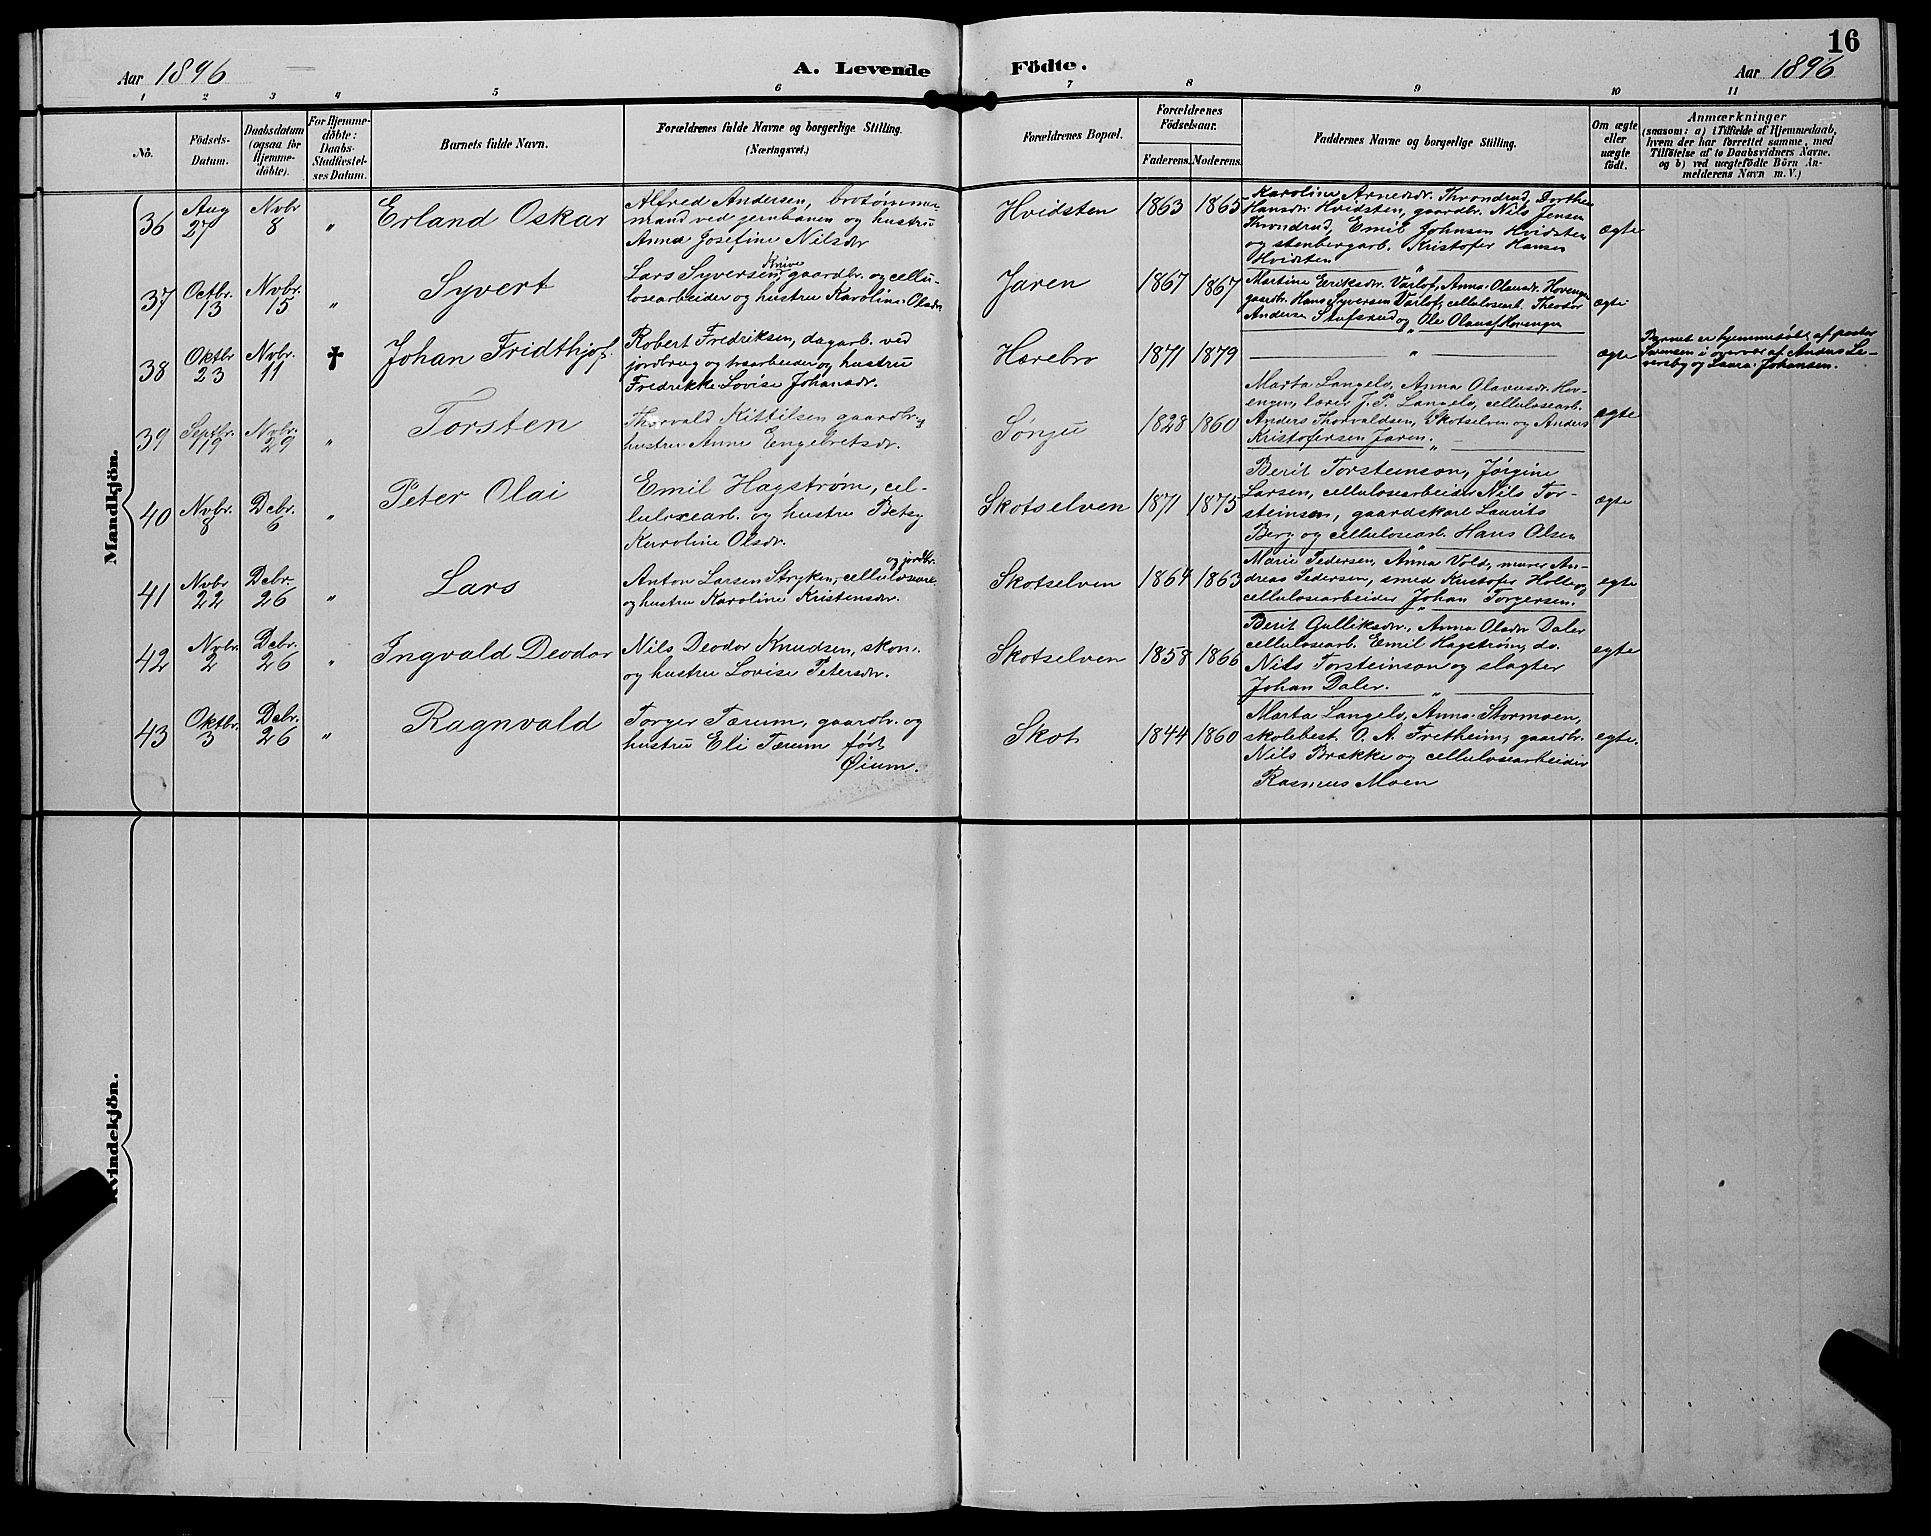 16
Aar 1896
A. Levende Födte.
Aar 1896
1 2 3 4 5 6 7 8 9 10 11
No.
Födsels-Datum.
Daabsdatum (ogsaa for Hjemmedöbte).
For Hjemmedöbte: Daabs-Stadfæstelses Datum.
Barnets fulde Navn.
Forældrenes fulde Navne og borgerlige Stilling.
(Næringsvei.)
Forældrenes Bopæl.
Forældrenes Födselsaar.
Faderens. Moderens.
Faddernes Navne og borgerlige Stilling.
Om ægte eller uægte födt.
Anmærkninger
(saasom: a) i Tilfælde af Hjemmedaab,
hvem der har forrettet samme, med
Tilföielse af to Daabsvidners Navne,
og b) ved uægtefödte Börn An-
melderens Navn m. V.)
Mandkjön.
36
Aug 27
Nvbr 8
"
Erland Oskar
Alfred Andersen, brotømme-
mand ved jernbanen og hustru
Anna Josefine Nilsdr
Hvidsten
1863 1865
Karoline Arnesdr. Throndrud, Dorthea
Hansdr. Hvidsten, gaardbr. Nils Jensen
Throndrud, Emil Johnsen Hvidsten
og stenbergarb. Kristofer Hansen
Hvidsten
ægte
37
Octbr. 13
Nvbr. 15
"
Syvert
Knive
Lars Syversen, gaardbr. og cellu-
losearbeider og hustru Karoline Olsdr
Jaren
1867 1867
Martine Eriksdr. Varlof, Anna Olausdr. Hovengen
gaardbr. Hans Syversen Varlof, cellulosearb. Theodor
Andersen Stufsrud og Ole Olausf Hovengen
ægte
38
Oktbr 23
Nvbr. 11
✝
Johan Fridthjof.
Robert Fredriksen, dagarb. ved
jordbrug og træarbeide og hustru
Fredrikke Lovise Johansdr.
Hærebro
1871 1879
"
ægte
Barnet er hjemmedøbt af pastor
Svensen i overvær af Anders Le-
versby og Laura Johansen.
39
Septbr. 19
Nvbr. 29
"
Torsten
Thorvald Kittilsen gaardbr. og
hustru Anne Engebretsdr.
Sønju
1828 1860
Marta Langelo, Anna Olavusdr. Hov-
engen, lærer J. P. Langelo, cellulosearb.
Anders Thorvaldsen, Skotselven og Anders
Kristofersen Jaren.
ægte
40
Nvbr. 8
Dcbr. 6
"
Peter Olai
Emil Hagstrøm, cel-
lulosearb. og hustru Betsy
Karoline Olsdr.
Skotselven
1871 1875
Berit Torsteinson, Jørgine
Larsen, cellulosearbeider Nils Tor-
steinsen, gaardskarl Laurits
Berg og cellulosearb. Hans Olsen
ægte
41
Nvbr 22
Dcbr. 26
"
Lars
og jordbr.
Anton Larsen Stryken, cellulosearb.
og hustru Karoline Kristensdr.
Skotselven
1864 1863
Marie Pedersen, Anna Vold, murer An-
dreas Pedersen, smed Kristofer Holle og
cellulosearbeider Johan Torgersen.
egte
42
Nvbr. 2
Dcbr. 26
"
Ingvald Deodor
Nils Deodor Knudsen, skom.
og hustru Lovise Petersdr.
Skotselven
1858 1866
Berit Gulliksdr., Anna Olsdr Daler
cellulosearb. Emil Hagstrøm, do.
Nils Torsteinson og slagter
Johan Daler.
egte
43
Oktbr. 3
Dcbr. 26
"
Ragnvald
Torger Tærum, gaardbr. og
hustru Eli Tærum født
Øium.
Skot
1844 1860
Marta Langelo, Anna Stormoen,
skolebest. O. A. Fretheim, gaardbr.
Nils Brække og cellulosearbeider
Rasmus Moen
egte.
Kvindekjön.